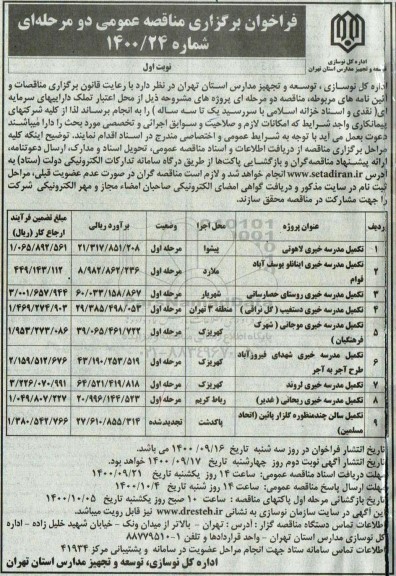 فراخوان برگزاری مناقصه عمومی دو مرحله‌ای
شماره ۱۴۰۰/۲۴
اداره کل نوسازی
توسعه و تجهیز مدارس استان تهران
نوبت اول
اداره کل نوسازی ، توسعه و تجهیز مدارس استان تهران در نظر دارد با رعایت قانون برگزاری مناقصات و
آئین نامه های مربوطه، مناقصه دو مرحله ای پروژه های مشروحه ذیل از محل اعتبار تملک دارایی­های سرمایه
ای( نقدی و اسناد خزانه اسلامی با سررسید یک تا سه ساله ) را به انجام برساند لذا از کلیه شرکتهای
پیمانکاری واجد شرایط که امکانات لازم و صلاحیت و سوابق اجرائی و تخصصی مورد بحث را دارا میباشند
دعوت بعمل می آید با توجه به شرایط عمومی و اختصاصی مندرج در اسناد اقدام نمایند. توضیح اینکه کلیه
مراحل برگزاری مناقصه از دریافت اطلاعات و اسناد مناقصه عمومی، تحویل اسناد و مدارک، ارسال دعوتنامه،
ارائه پیشنهاد مناقصه گران و بازگشایی پاکت‌ها از طریق درگاه سامانه تدارکات الکترونیکی دولت (ستاد) به
آدرس www.setadiran.ir انجام خواهد شد و لازم است مناقصه گران در صورت عدم عضویت قبلی، مراحل
ثبت نام در سایت مذکور و دریافت گواهی امضای الکترونیکی صاحبان امضاء مجاز و مهر الکترونیکی شرکت
را جهت مشارکت در مناقصه محقق سازند.
ردیف عنوان پروژه محل اجرا وضعیت برآورد ریالی مبلغ تضمین فرآیند ارجاع کار (ریال)
۱ تکمیل مدرسه خیری لاهوتی پیشوا مرحله اول ۲۱/۳۱۷/۸۵۱/۲۰۸ ۱/۰۶۵/۸۹۲/۵۶۱
۲ تکمیل مدرسه خیری اینانلو یوسف آباد قوام ملارد مرحله اول ۸/۹۸۲/۸۶۲/۲۳۶ ۴۴۹/۱۴۳/۱۱۲
۳ تکمیل مدرسه خیری روستای حصارساتی شهریار مرحله اول ۶۰/۰۳۳/۱۵۸/۸۶۷ ۳/۰۰۱/۶۵۷/۹۴۴
۴ تکمیل مدرسه خیری دستغیب ( گل نراقی ) منطقه ۳ تهران مرحله اول ۲۹/۳۸۵/۴۹۸/۰۵۳ ۱/۴۶۹/۲۷۴/۹۰۳
۵ تکمیل مدرسه خیری موجانی ( شهرک فرهنگیان ) کهریزک مرحله اول ۳۹/۰۶۵/۴۶۱/۷۲۲ ۱/۹۵۳/۲۷۳/۰۸۶
۶ تکمیل مدرسه خیری شهدای فیروزآباد طرح آجر به آجر کهریزک مرحله اول ۴۳/۱۹۰/۲۵۳/۵۱۹ ۲/۱۵۹/۵۱۲/۶۷۶
۷ تکمیل مدرسه خیری لروند کهریزک مرحله اول ۶۴/۵۲۱/۴۱۹/۸۱۸ ۳/۲۲۶/۰۷۰/۹۹۱
۸ تکمیل مدرسه خیری ریحانی ( غدیر) رباط کریم مرحله اول ۲۰/۹۹۶/۱۴۴/۵۲۳ ۱/۰۴۹/۸۰۷/۲۲۷
۹ تکمیل سالن چندمنظوره گلزار پائین (اتحاد مسلمین) پاکدشت تجدیدشده ۲۷/۶۱۰/۸۵۵/۳۱۴ ۱/۳۸۰/۵۴۲/۷۶۶
تاریخ انتشار فراخوان در روز سه شنبه تاریخ ۱۴۰۰ /۰۹/۱۶ می باشد.
تاریخ انتشار آگهی نوبت دوم روز چهارشنبه تاریخ ۱۴۰۰ /۰۹/۱۷ خواهد بود.
مهلت دریافت اسناد مناقصه عمومی: ساعت ۱۴ روز یکشنبه تاریخ ۱۴۰۰/۰۹/۲۱
مهلت ارسال پاسخ مناقصه عمومی: ساعت ۱۴ روز شنبه تاریخ ۱۴۰۰/۱۰/۴
تاریخ بازگشائی مرحله اول پاکتهای مناقصه : ساعت ۱۰ صبح روز یکشنبه تاریخ ۱۴۰۰/۱۰/۰۵
این آگهی در سایت سازمان نوسازی به نشانی www.dresteh.ir نیز قابل رویت میباشد.
اطلاعات تماس دستگاه مناقصه گزار : آدرس : تهران – بالاتر از میدان ونک – خیابان شهید خلیل زاده – اداره
کل نوسازی مدارس استان تهران – واحد قراردادها و تلفن ۱-۸۸۷۷۹۵۱۰
اطلاعات تماس سامانه ستاد جهت انجام مراحل عضویت در سامانه و پشتیبانی مرکز ۴۱۹۳۴
اداره کل نوسازی، توسعه و تجهیز مدارس استان تهران